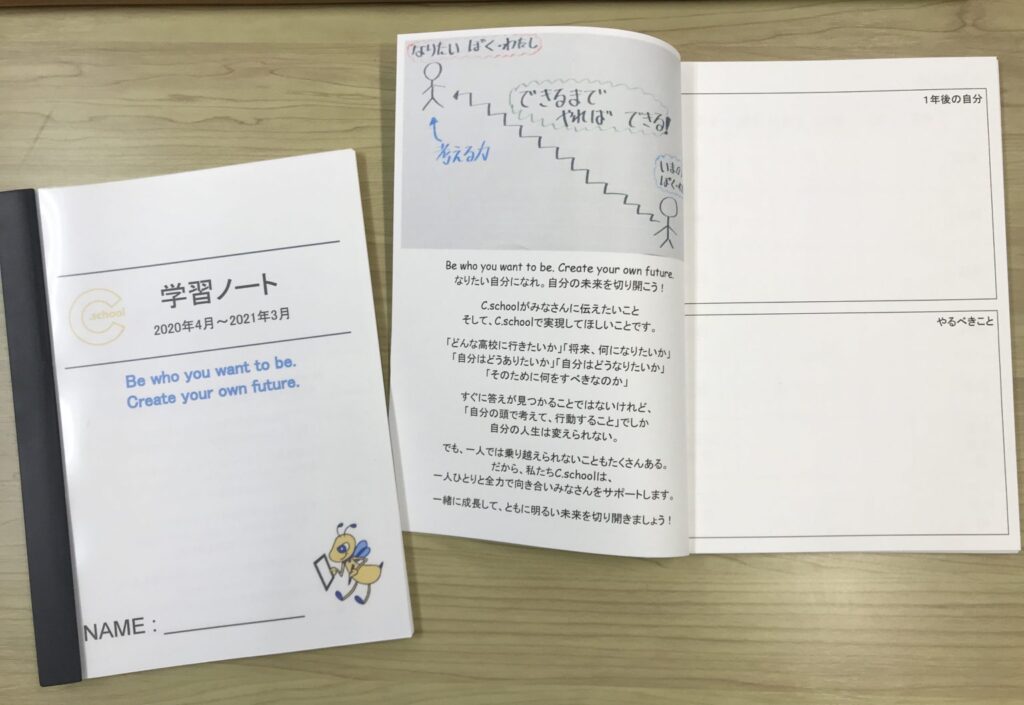 C.school
学習ノート
2020年4月～2021年3月
Be who you want to be.
Create your own future.
NAME :
なりたい ぼく・わたし
できるまで
やれば できる!
考える力
いまの
ぼく・わ
Be who you want to be. Create your own future.
なりたい自分になれ。自分の未来を切り開こう！
C.schoolがみなさんに伝えたいこと
そして、C.schoolで実現してほしいことです。
「どんな高校に行きたいか」「将来、何になりたいか」
「自分はどうありたいか」「自分はどうなりたいか」
「そのために何をすべきなのか」
すぐに答えが見つかることではないけれど、
「自分の頭で考えて、行動すること」でしか
自分の人生は変えられない。
でも、一人では乗り越えられないこともたくさんある。
だから、私たちC.schoolは、
一人ひとりと全力で向き合いみなさんをサポートします。
一緒に成長して、ともに明るい未来を切り開きましょう！
1年後の自分
やるべきこと